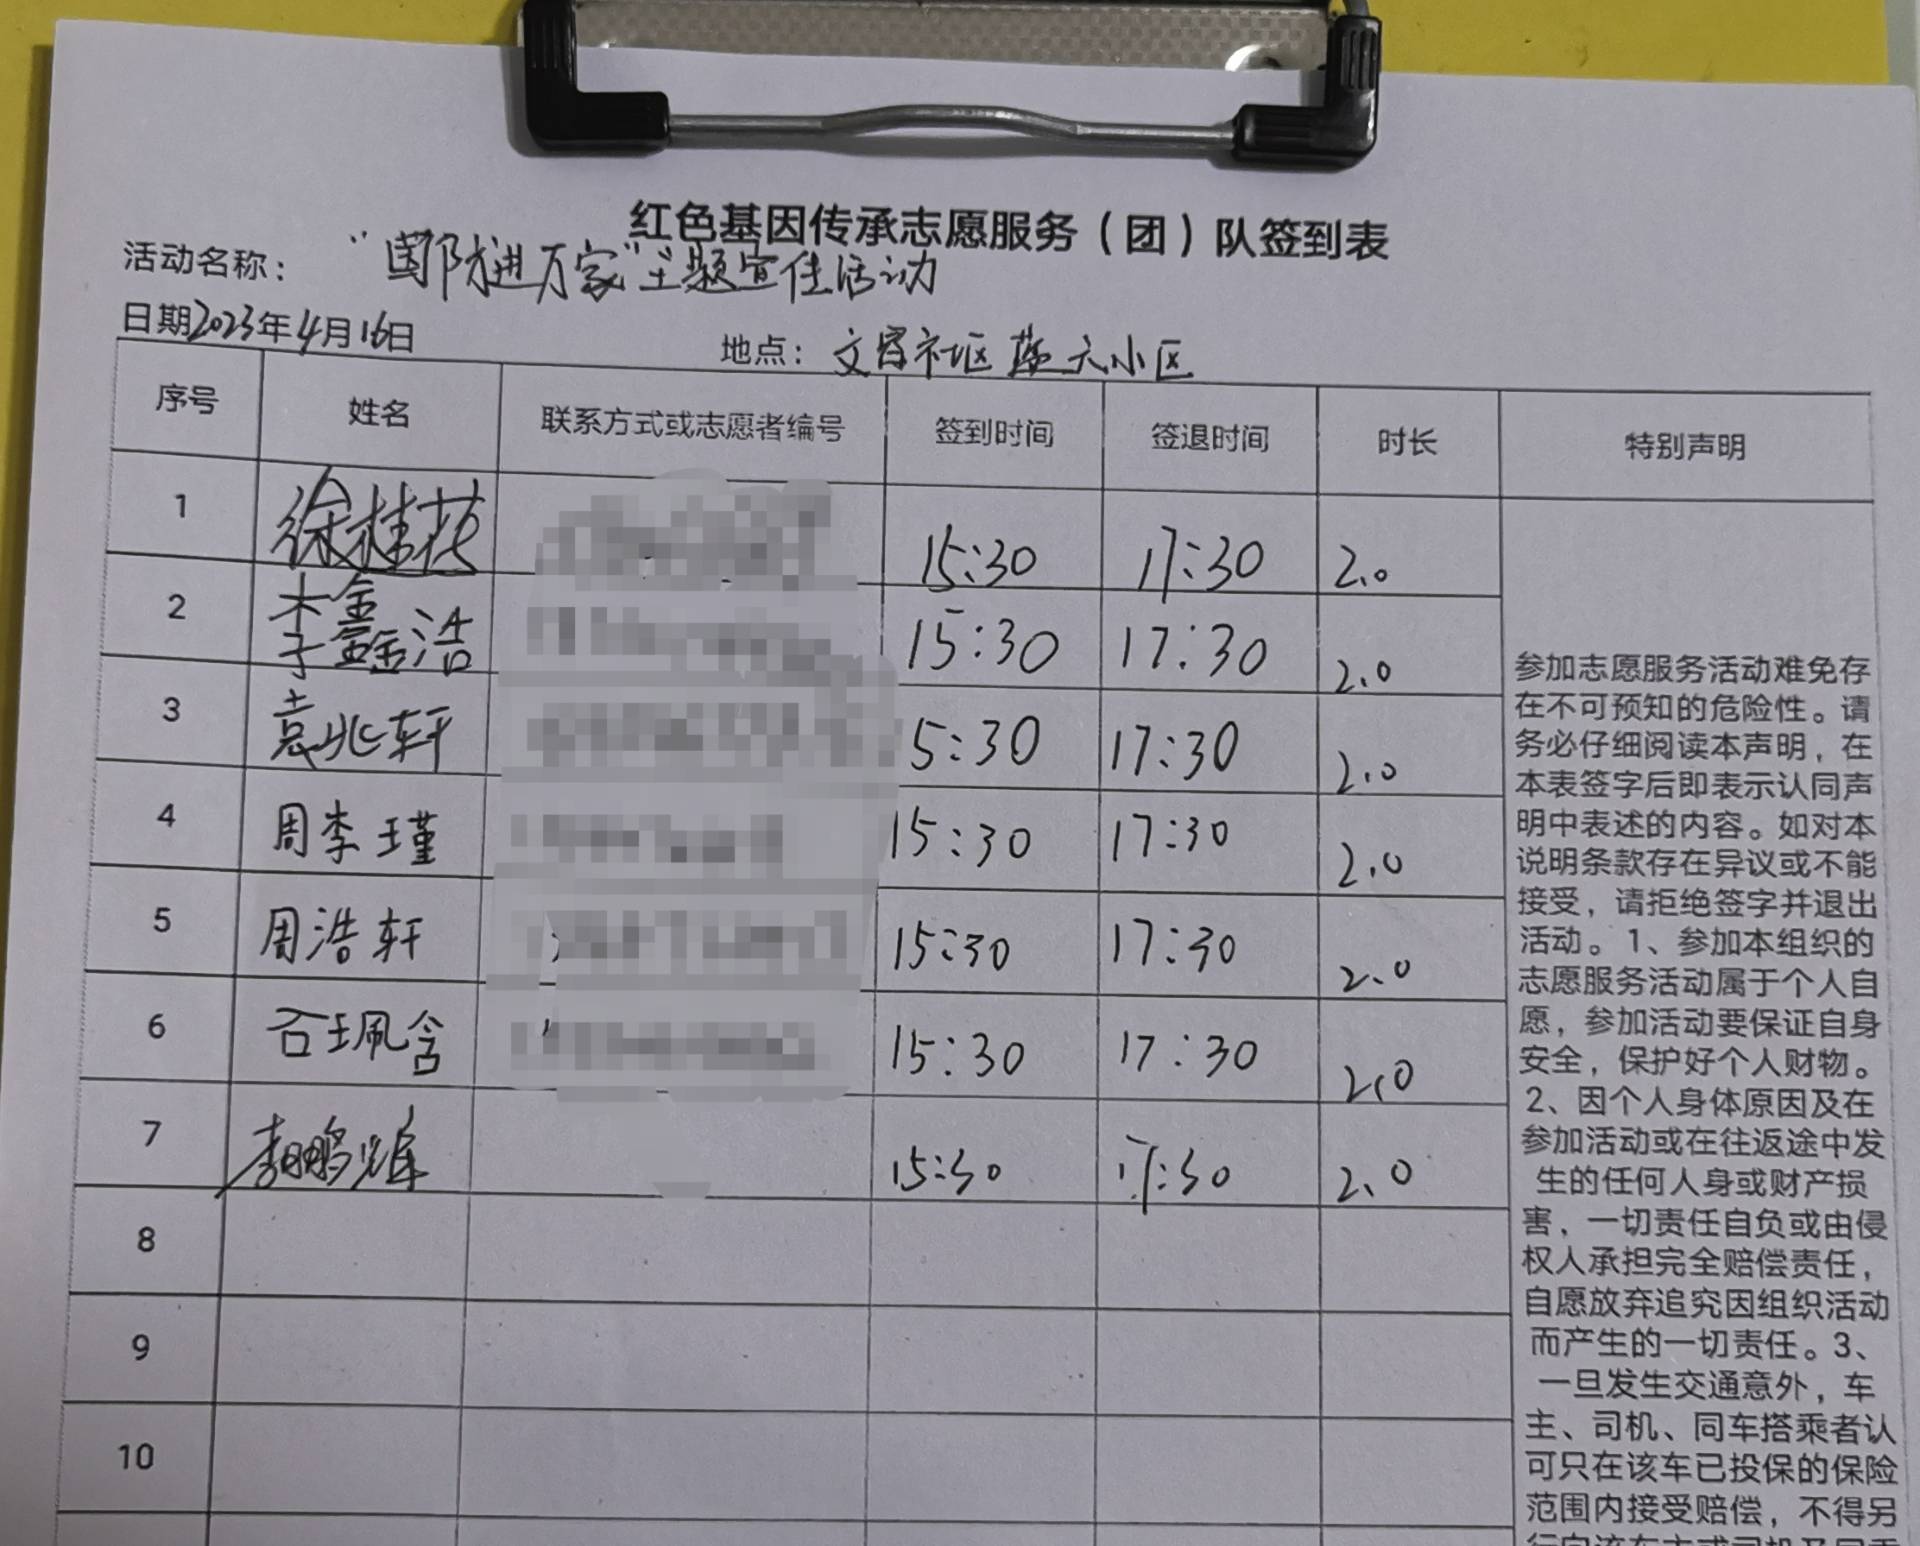 红色基因传承志愿服务（团）队签到表
活动名称： “国防进万家”主题宣传活动
日期2023年4月16日 地点：文宫社区 蓝天小区
序号 姓名 联系方式或志愿者编号 签到时间 签退时间 时长 特别声明
1 徐桂 15:30 17:30 2.0
2 李鑫浩 15:30 17:30 2.0
3 袁兆轩 5:30 17:30 2.0
4 周李瑾 15:30 17:30 2.0
5 周浩轩 15:30 17:30 2.0
6 石珮含 15:30 17:30 2.0
7 李鹏辉 15:30 17:30 2.0
8
9
10
参加志愿服务活动难免存
在不可预知的危险性。请
务必仔细阅读本声明，在
本表签字后即表示认同声
明中表述的内容。如对本
说明条款存在异议或不能
接受，请拒绝签字并退出
活动。1、参加本组织的
志愿服务活动属于个人自
愿，参加活动要保证自身
安全，保护好个人财物。
2、因个人身体原因及在
参加活动或在往返途中发
生的任何人身或财产损
害，一切责任自负或由侵
权人承担完全赔偿责任，
自愿放弃追究因组织活动
而产生的一切责任。3、
一旦发生交通意外，车
主、司机、同车搭乘者认
可只在该车已投保的保险
范围内接受赔偿，不得另